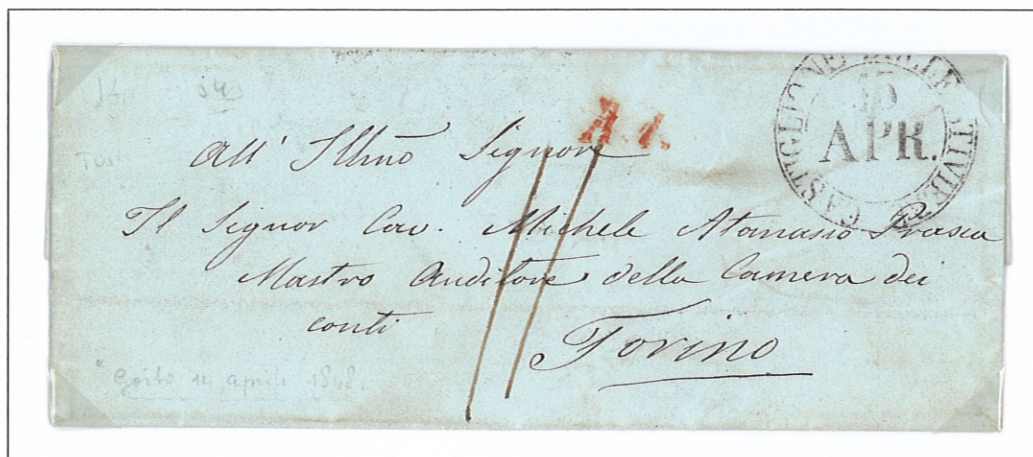 CASTIGLIONE DELLE STIVIE.
15
APR.
A. 1.
All' Illmo Signore
Il Signor Cav. Michele Atanasio Prasca
Mastro Auditore della Camera dei
conti
Torino
Goito 14 aprile 1848.